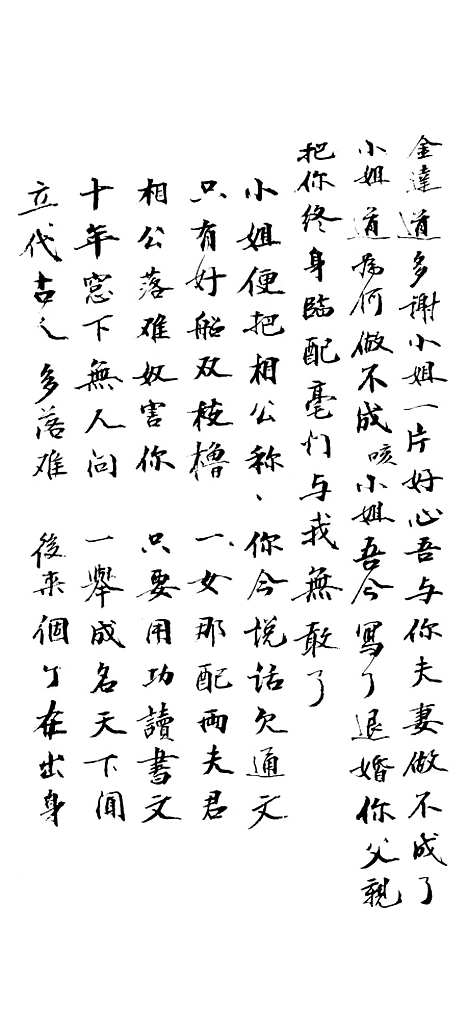 金達道多谢小姐一片好心吾与你夫妻做不成了
小姐道為何做不成咳小姐吾今寫了退婚你父親
把你终身臨配毫门与我無敢了
小姐便把相公称、你今说话欠通文
只有好船双枝橹 一女那配两夫君
相公落难奴害你 只要用功讀書文
十年窓下無人问 一舉成名天下闻
立代古人多落难 後来個个在出身